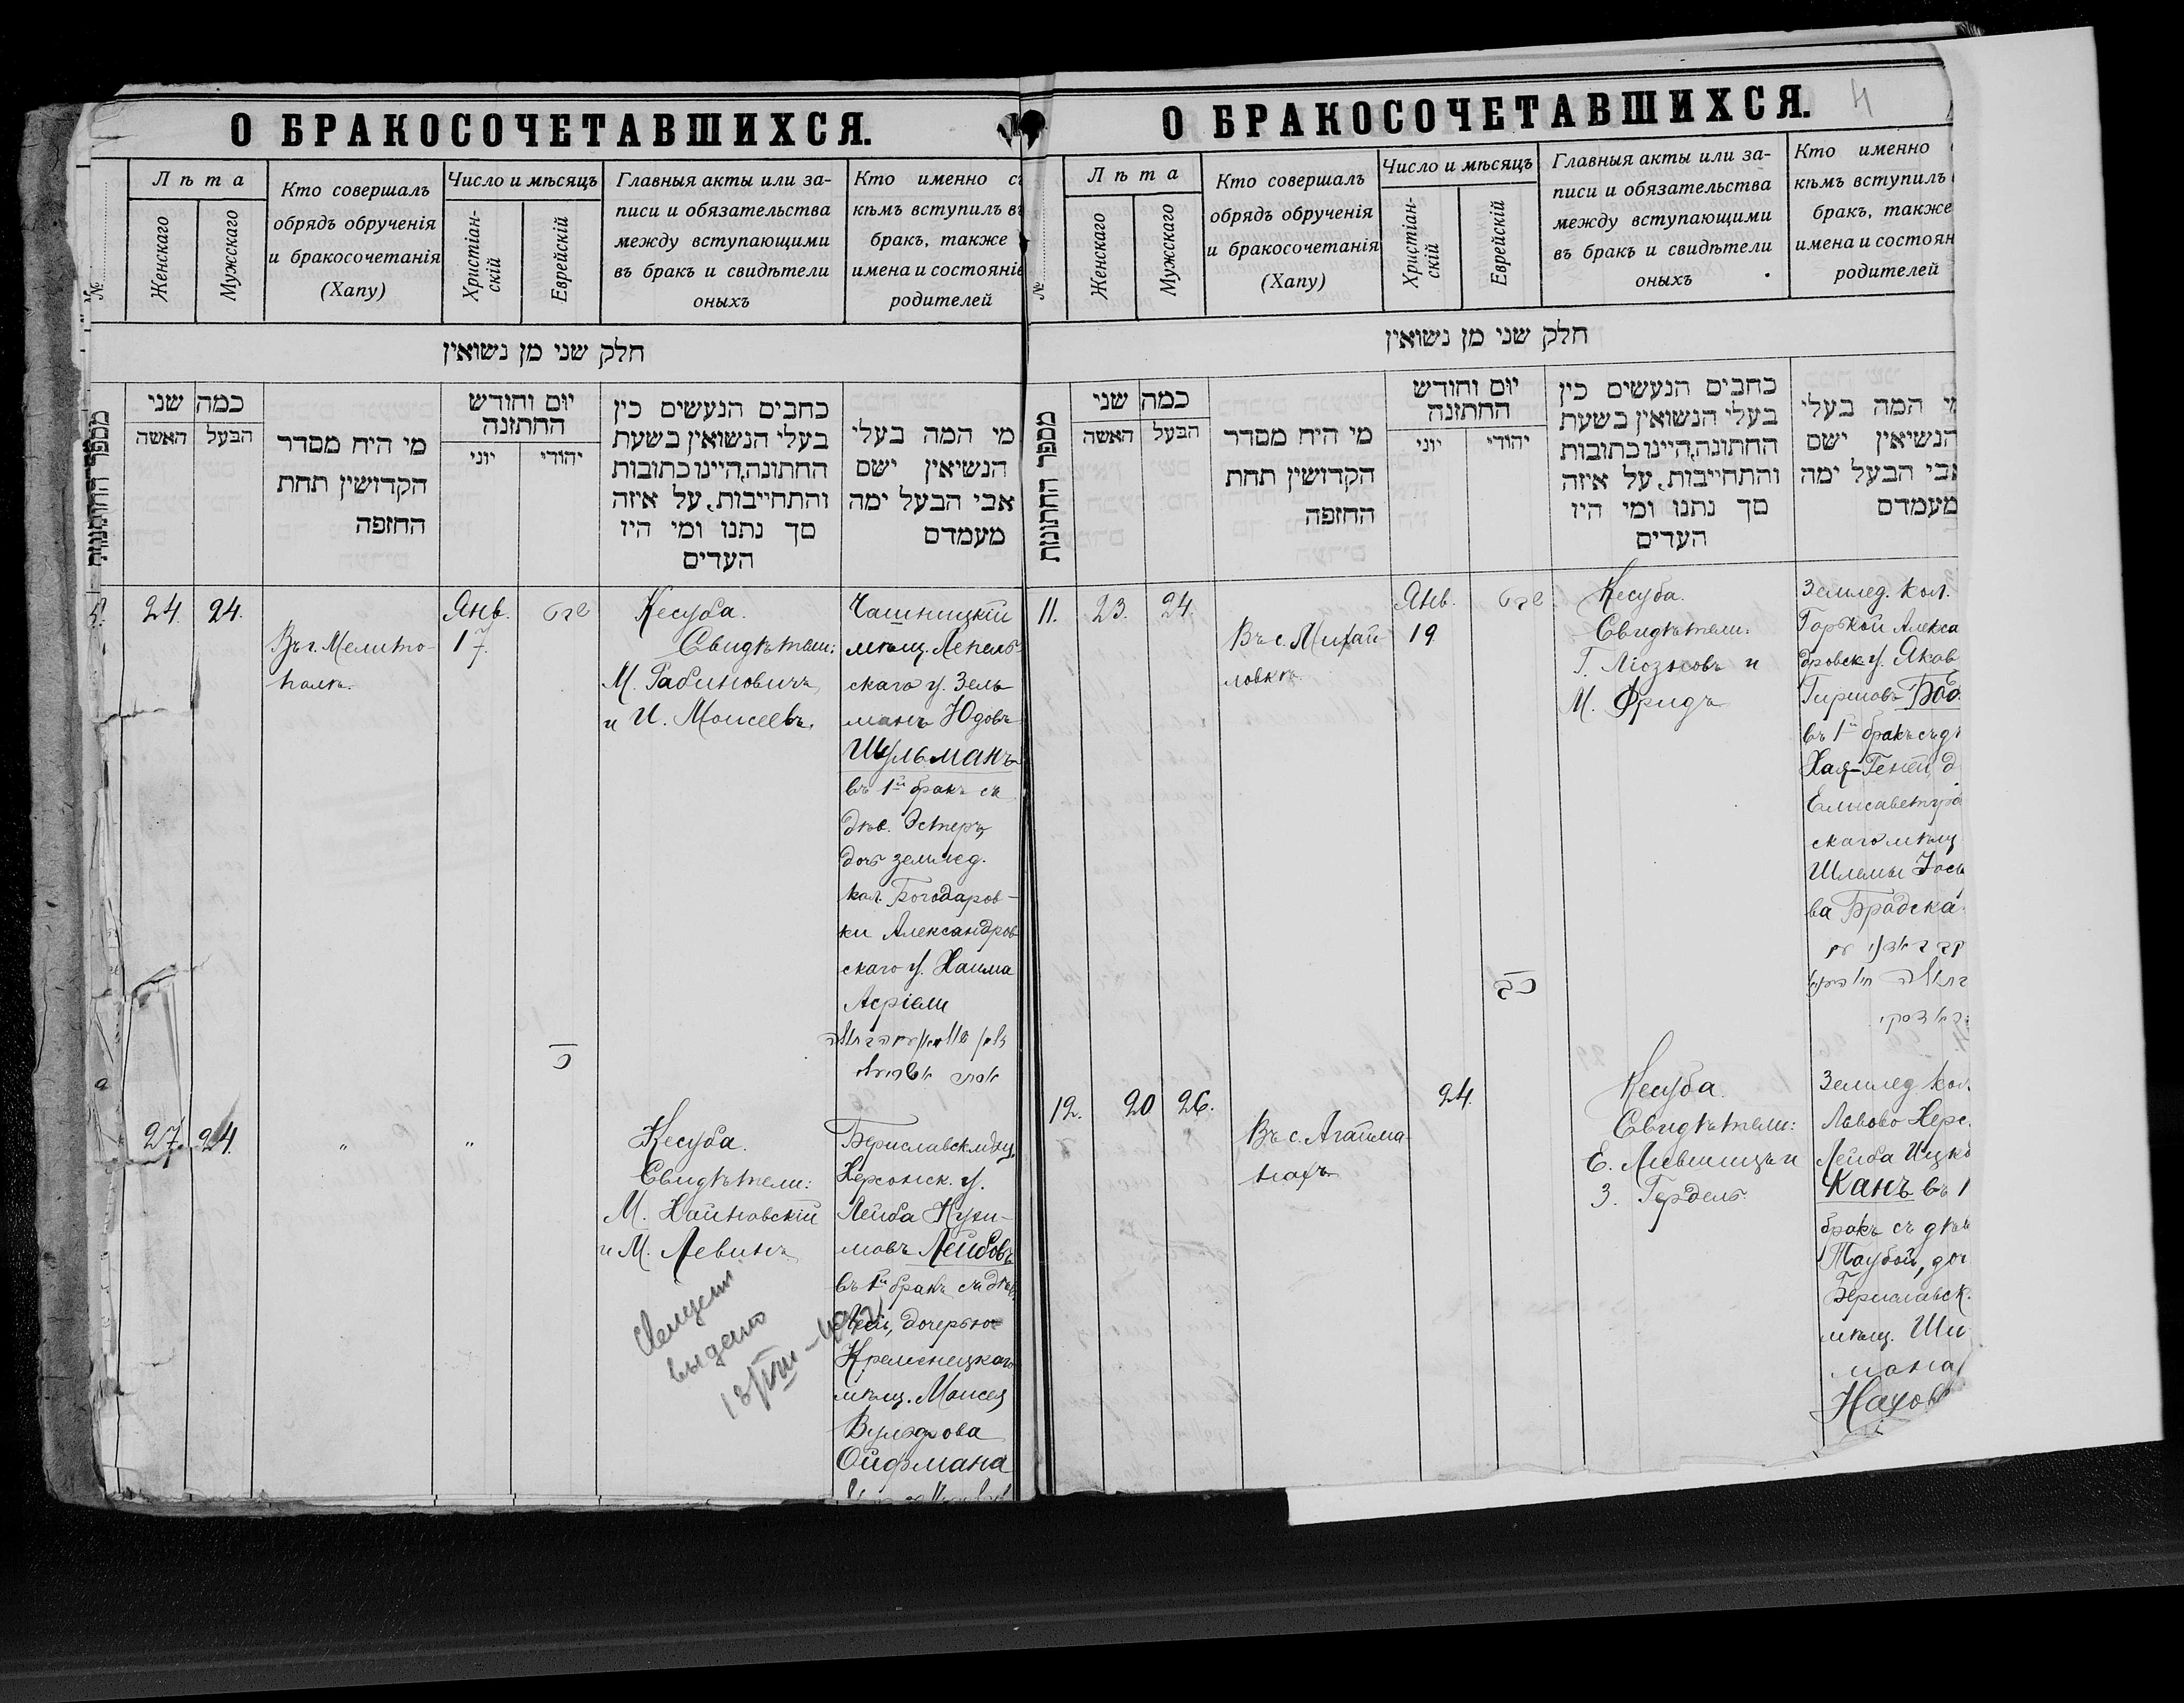 О БРАКОСОЧЕТАВШИХСЯ.
№
Лѣта
Женскаго
Мужскаго
Кто совершалъ
обрядъ обрученія
и бракосочетанія
(Хапу)
Число и мѣсяцъ
Христіан-
скій
Еврейскій
Главныя акты или за-
писи и обязательства
между вступающими
въ бракъ и свидѣтели
оныхъ
Кто именно съ
кѣмъ вступилъ въ
бракъ, также
имена и состояніе
родителей
חלק שני מן נשואין
מספר החתונות
כמה שני
האשה
הבעל
מי היח מסדר
הקדושין תחת
החופה
יום וחודש
החתונה
יוני
יהודי
כתבים הנעשים כין
בעלי הנשואין בשעת
החתונה,היינו כתובות
והתחייבות, על איזה
סך נתנו ומי היו
העדים
מי המה בעלי
הנשיאין ישם
אבי הבעל ימה
מעמדם
5. 24. 24.
Въ г. Мелито-
полѣ.
Янв.
17.
שבט
כ
Кесуба.
Свидѣтели:
М. Рабиновичъ
и И. Моисеевъ.
Чашницкій
мѣщ. Лепель
скаго у. Зель
манъ Юдовъ
Шульманъ
въ 1й бракъ съ
дѣв. Эстеръ,
дочь землед.
кол. Богодаров-
ки Александров
скаго у. Хаима
Асріели
27. 24.
"
"
Кесуба.
Свидѣтели:
М. Хайновскій
и М. Левинъ
выдано
18/VIII
Бериславск. мѣщ.
Херсонск. у.
Лейба
мовъ Лейбовъ
въ 1й бракъ съ дѣв.
дочерью
Кременецкаго
мѣщ. Моисея
Вульфова
Ойфмана
О БРАКОСОЧЕТАВШИХСЯ.
4
№
Лѣта
Женскаго
Мужскаго
Кто совершалъ
обрядъ обрученія
и бракосочетанія
(Хапу)
Число и мѣсяцъ
Христіан-
скій
Еврейскій
Главныя акты или за-
писи и обязательства
между вступающими
въ бракъ и свидѣтели
оныхъ
Кто именно
кѣмъ вступилъ
бракъ, также
имена и состоян
родителей
חלק שני מן נשואין
מספר החתונות
כמה שני
האשה
הבעל
מי היח מסדר
הקדושין תחת
החופה
יום וחודש
החתונה
יוני
יהודי
כתבים הנעשים כין
בעלי הנשואין בשעת
החתונה,היינו כתובות
והתחייבות, על איזה
סך נתנו ומי היו
העדים
מי המה בעלי
הנשיאין ישם
אבי הבעל ימה
מעמדם
11. 23. 24.
Въ с. Михай-
ловкѣ.
Янв.
19
שבט
כב
Кесуба.
Свидѣтели:
Г. Ліозновъ и
М. Фридъ
Землед. кол.
Горькой Алекса
дровск. у. Яков
Гиршовъ
въ 1й бракъ съ дѣ
Хая-Геней, д
Елисаветгра
скаго мѣщ
Шлемы Іось
ва Бродска
12. 20 26.
Въ с. Агайма-
нахъ
24.
Кесуба.
Свидѣтели:
Е. Лившицъ и
З. Гордель
Землед. кол.
Львово Херс.
Лейба Ицко
Канъ въ 1
бракъ съ дѣв
Таубой, доч
Бериславск.
мѣщ. Ши
мона
Нахов